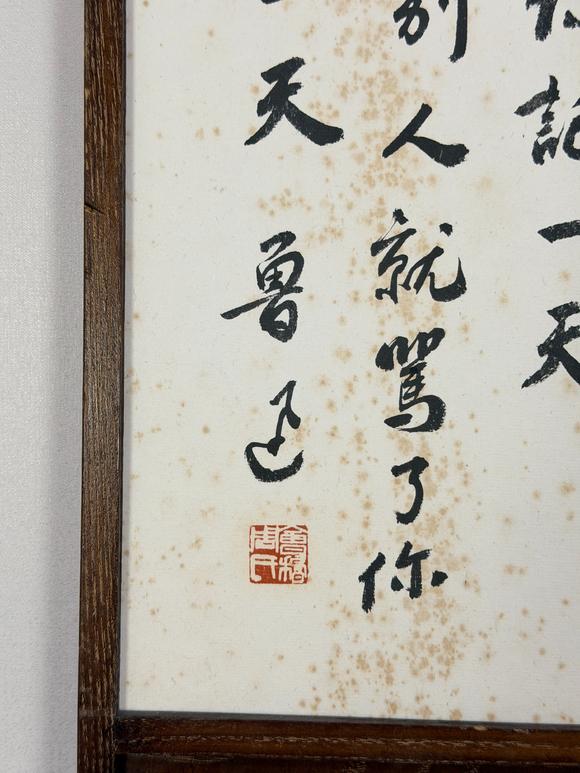 記一天
别人就罵了你
天 魯迅
會稽周氏